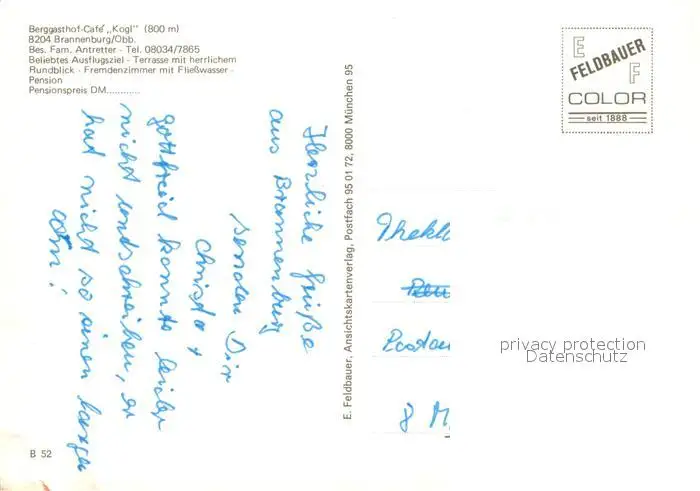 Berggasthof-Café „Kogl" (800 m)
8204 Brannenburg/Obb.
Bes. Fam. Antretter - Tel. 08034/7865
Beliebtes Ausflugsziel - Terrasse mit herrlichem
Rundblick - Fremdenzimmer mit Fließwasser -
Pension
Pensionspreis DM............
Herzliche Grüße
aus Brannenburg
senden Dir
Christa +
Gottfried konnte leider
nicht unterschreiben, er
hat nicht so einen langen
Arm!
B 52
E. Feldbauer, Ansichtskartenverlag, Postfach 95 01 72, 8000 München 95
E
FELDBAUER
F
COLOR
seit 1888
Thekl
Postau
8 M
privacy protection
Datenschutz